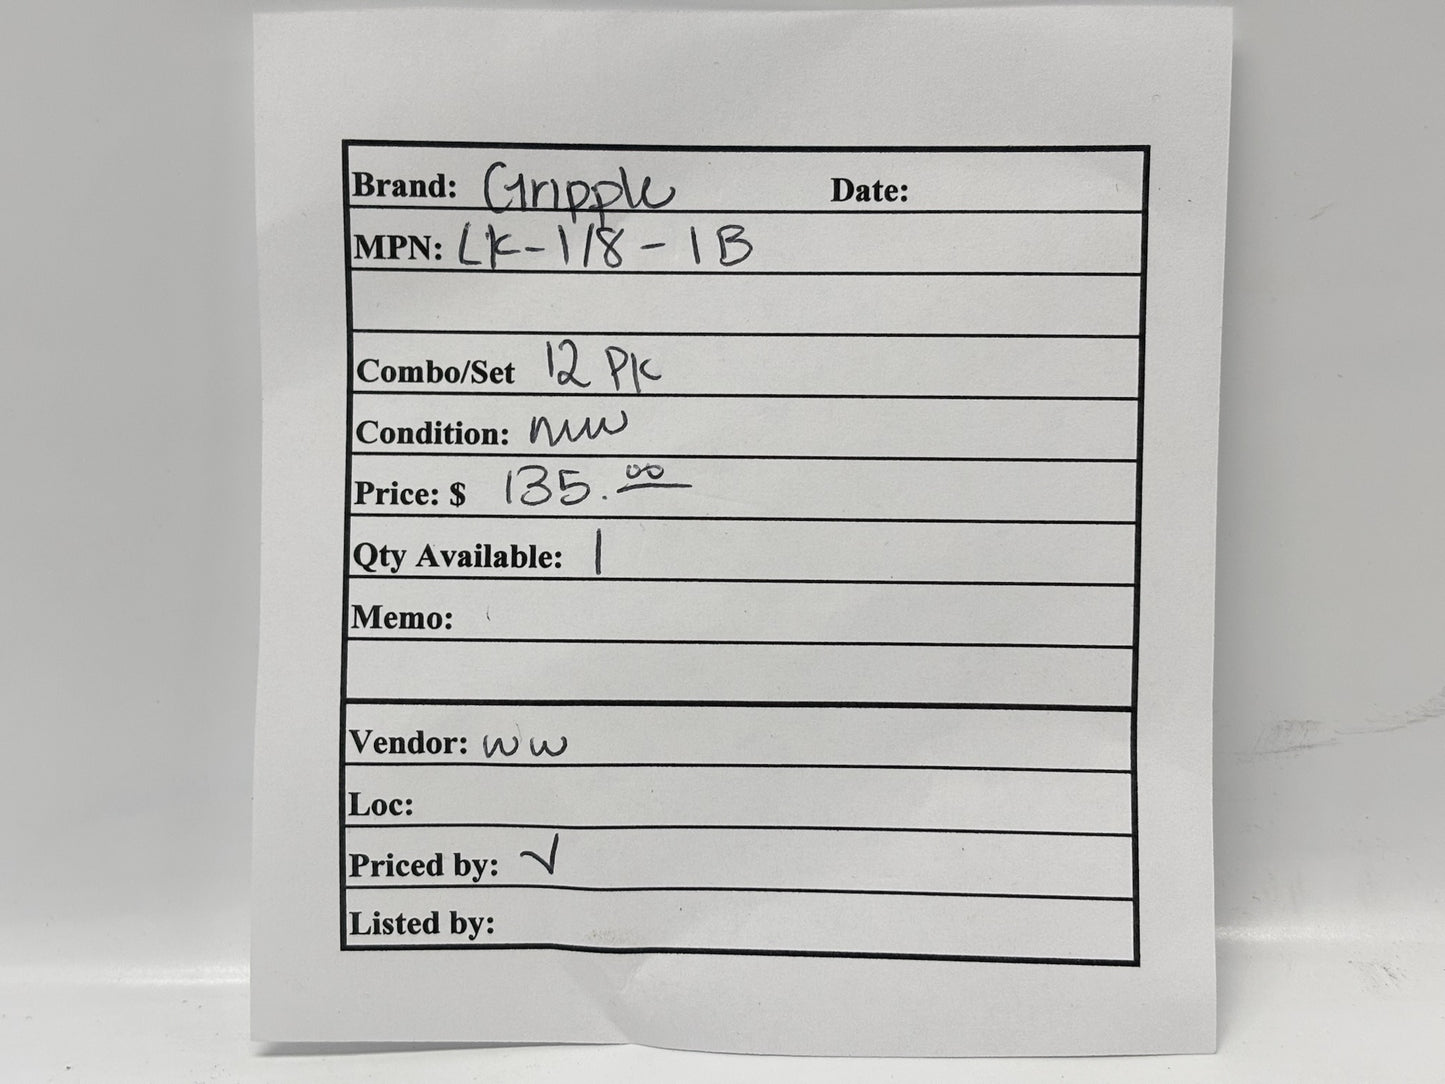 Brand: Gripple Date:
MPN: LK-1/8-1B
Combo/Set 12 PK
Condition: new
Price: $ 135.00
Qty Available: 1
Memo:
Vendor: WW
Loc:
Priced by: ✓
Listed by: